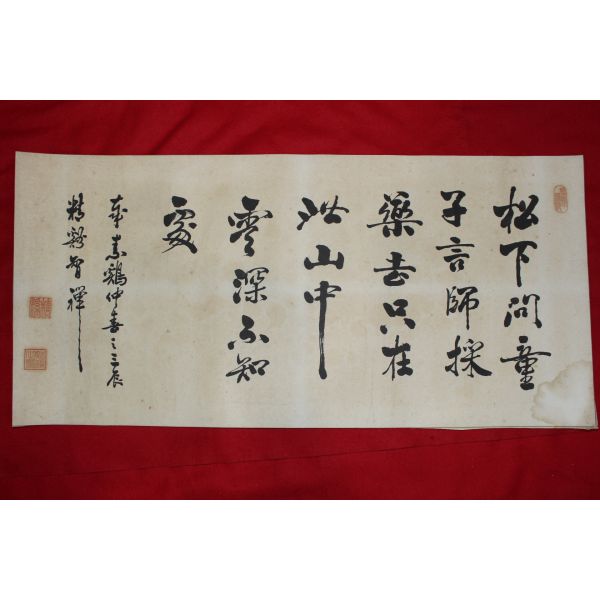 松下問童
子言師採
藥去只在
此山中
雲深不知
處
素鷄仲之三辰
谿智禪